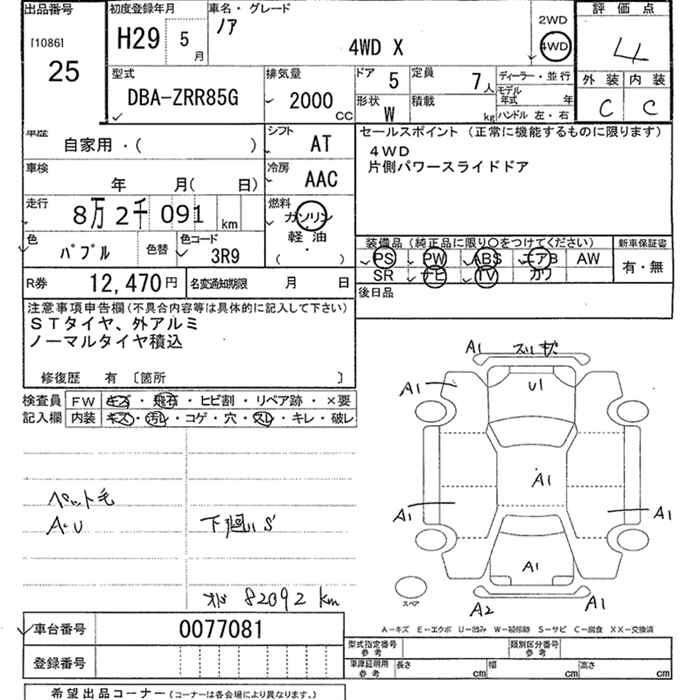 出品番号
[1086]
25
初度登録年月
H29 5月
車名・グレード
ノア
4WD X
2WD
4WD
評価点
4
外装 内装
C C
型式
DBA-ZRR85G
排気量
2000 CC
ドア 5
定員 7人
形状 W
積載 kg
ディーラー・並行
モデル年式 年
ハンドル 左・右
車歴
自家用・( )
シフト
AT
車検
年 月( 日)
冷房
AAC
走行
8万2千091 km
燃料
ガソリン
軽・油
( ・ )
色
パプル
色替
色コード
3R9
R券 12,470円
名変通知期限 月 日
セールスポイント (正常に機能するものに限ります)
4WD
片側パワースライドドア
装備品 (純正品に限り○をつけてください)
新車保証書
PS PW ABS エアB AW
SR ナビ TV カワ
有・無
後日品
注意事項申告欄(不具合内容等は具体的に記入して下さい)
STタイヤ、外アルミ
ノーマルタイヤ積込
修復歴 有 〔箇所 〕
検査員 FW キズ・飛石・ヒビ割・リペア跡・×要
記入欄 内装 キズ・汚レ・コゲ・穴・スレ・キレ・破レ
ペット毛
A・U
下廻りS
オド 82092 km
A1 スリキズ
A1 U1
A1
A1 A1
A1
A2 A1
スペア
A-キズ E-エクボ U-凹み W-補修跡 S-サビ C-腐食 XX-交換済
車台番号 0077081
登録番号
型式指定番号 参考
類別区分番号 参考
車庫証明用 参考 長さ cm 幅 cm 高さ cm
希望出品コーナー (コーナーは各会場により異なります。)